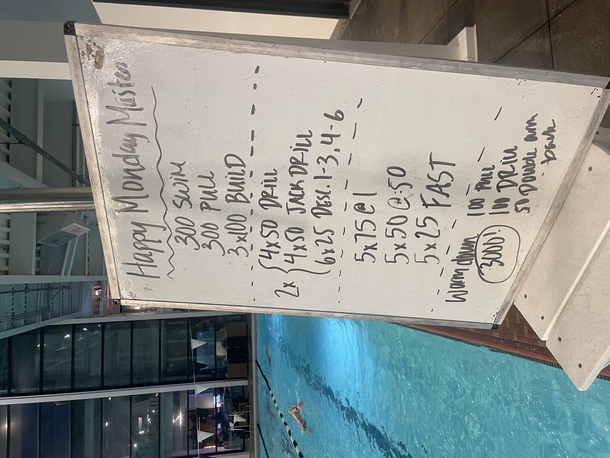 Happy Monday Masters
300 SWIM
300 PULL
3x100 BUILD
2x { 4x50 DRILL
4x50 JACK DRILL
6x25 DESC. 1-3, 4-6
5x75 @ 1
5x50 @ :50
5x25 FAST
Warm down 100 PULL
100 DRILL
50 DOUBLE arm
back
3000!